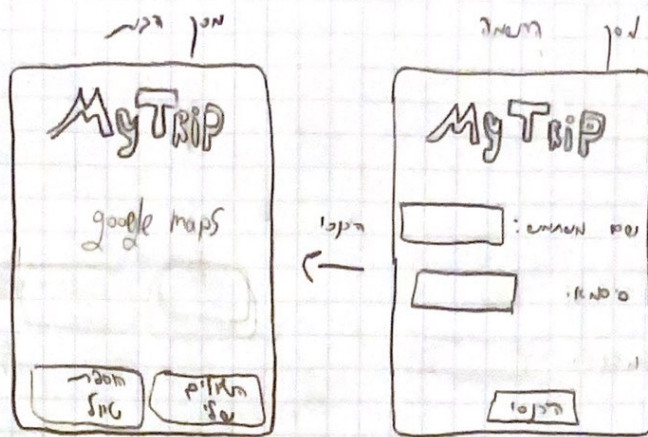 מסך הרשמה
MyTRiP
שם משתמש:
סיסמא:
מסך הבית
MyTRiP
google maps
הטיולים שלי
הוספת טיול